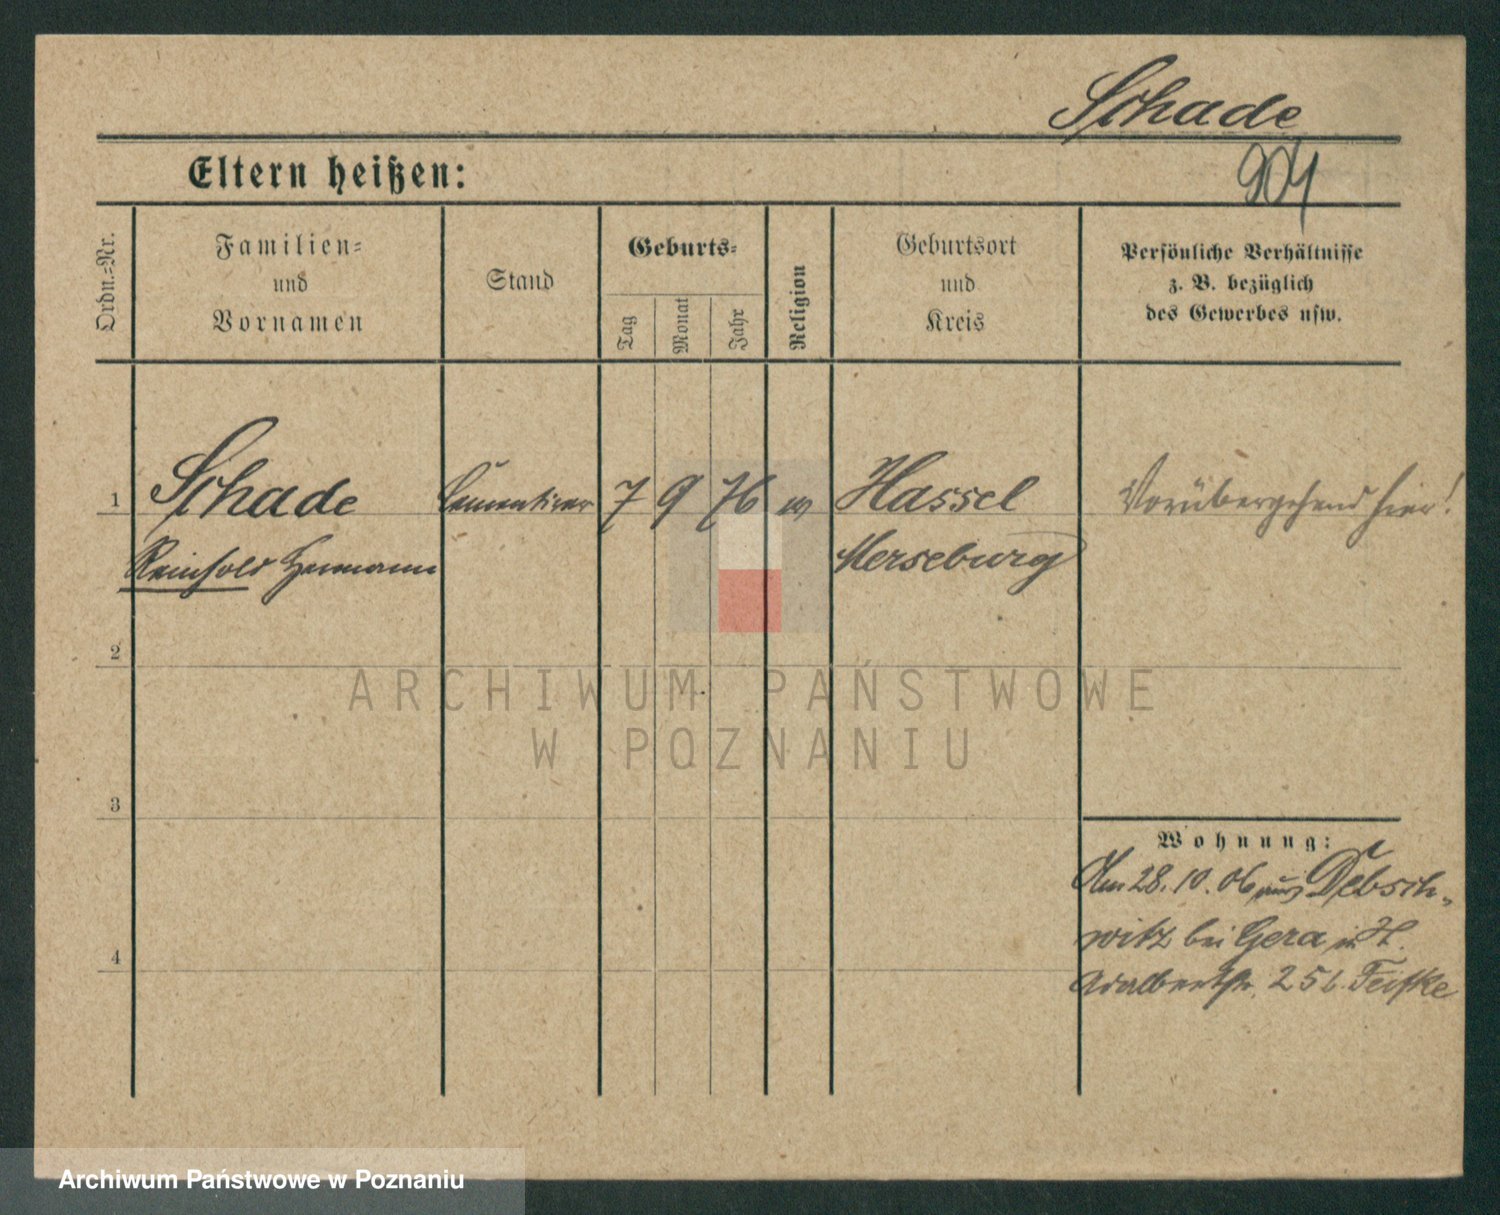 Schade
904
Eltern heißen:
Ordn.=Nr.
Familien=
und
Vornamen
Stand
Geburts=
Tag
Monat
Jahr
Religion
Geburtsort
und
Kreis
Persönliche Verhältnisse
z. B. bezüglich
des Gewerbes usw.
1
Schade
Reinhold Hermann
Cementirer
7 9 76
Hassel
Merseburg
Vorübergehend hier!
2
ARCHIWUM PAŃSTWOWE
W POZNANIU
3
Wohnung:
Am 28.10.06 aus Debsch-
witz bei Gera in
Adalbertstr. 25 b. Feiske
4
Archiwum Państwowe w Poznaniu